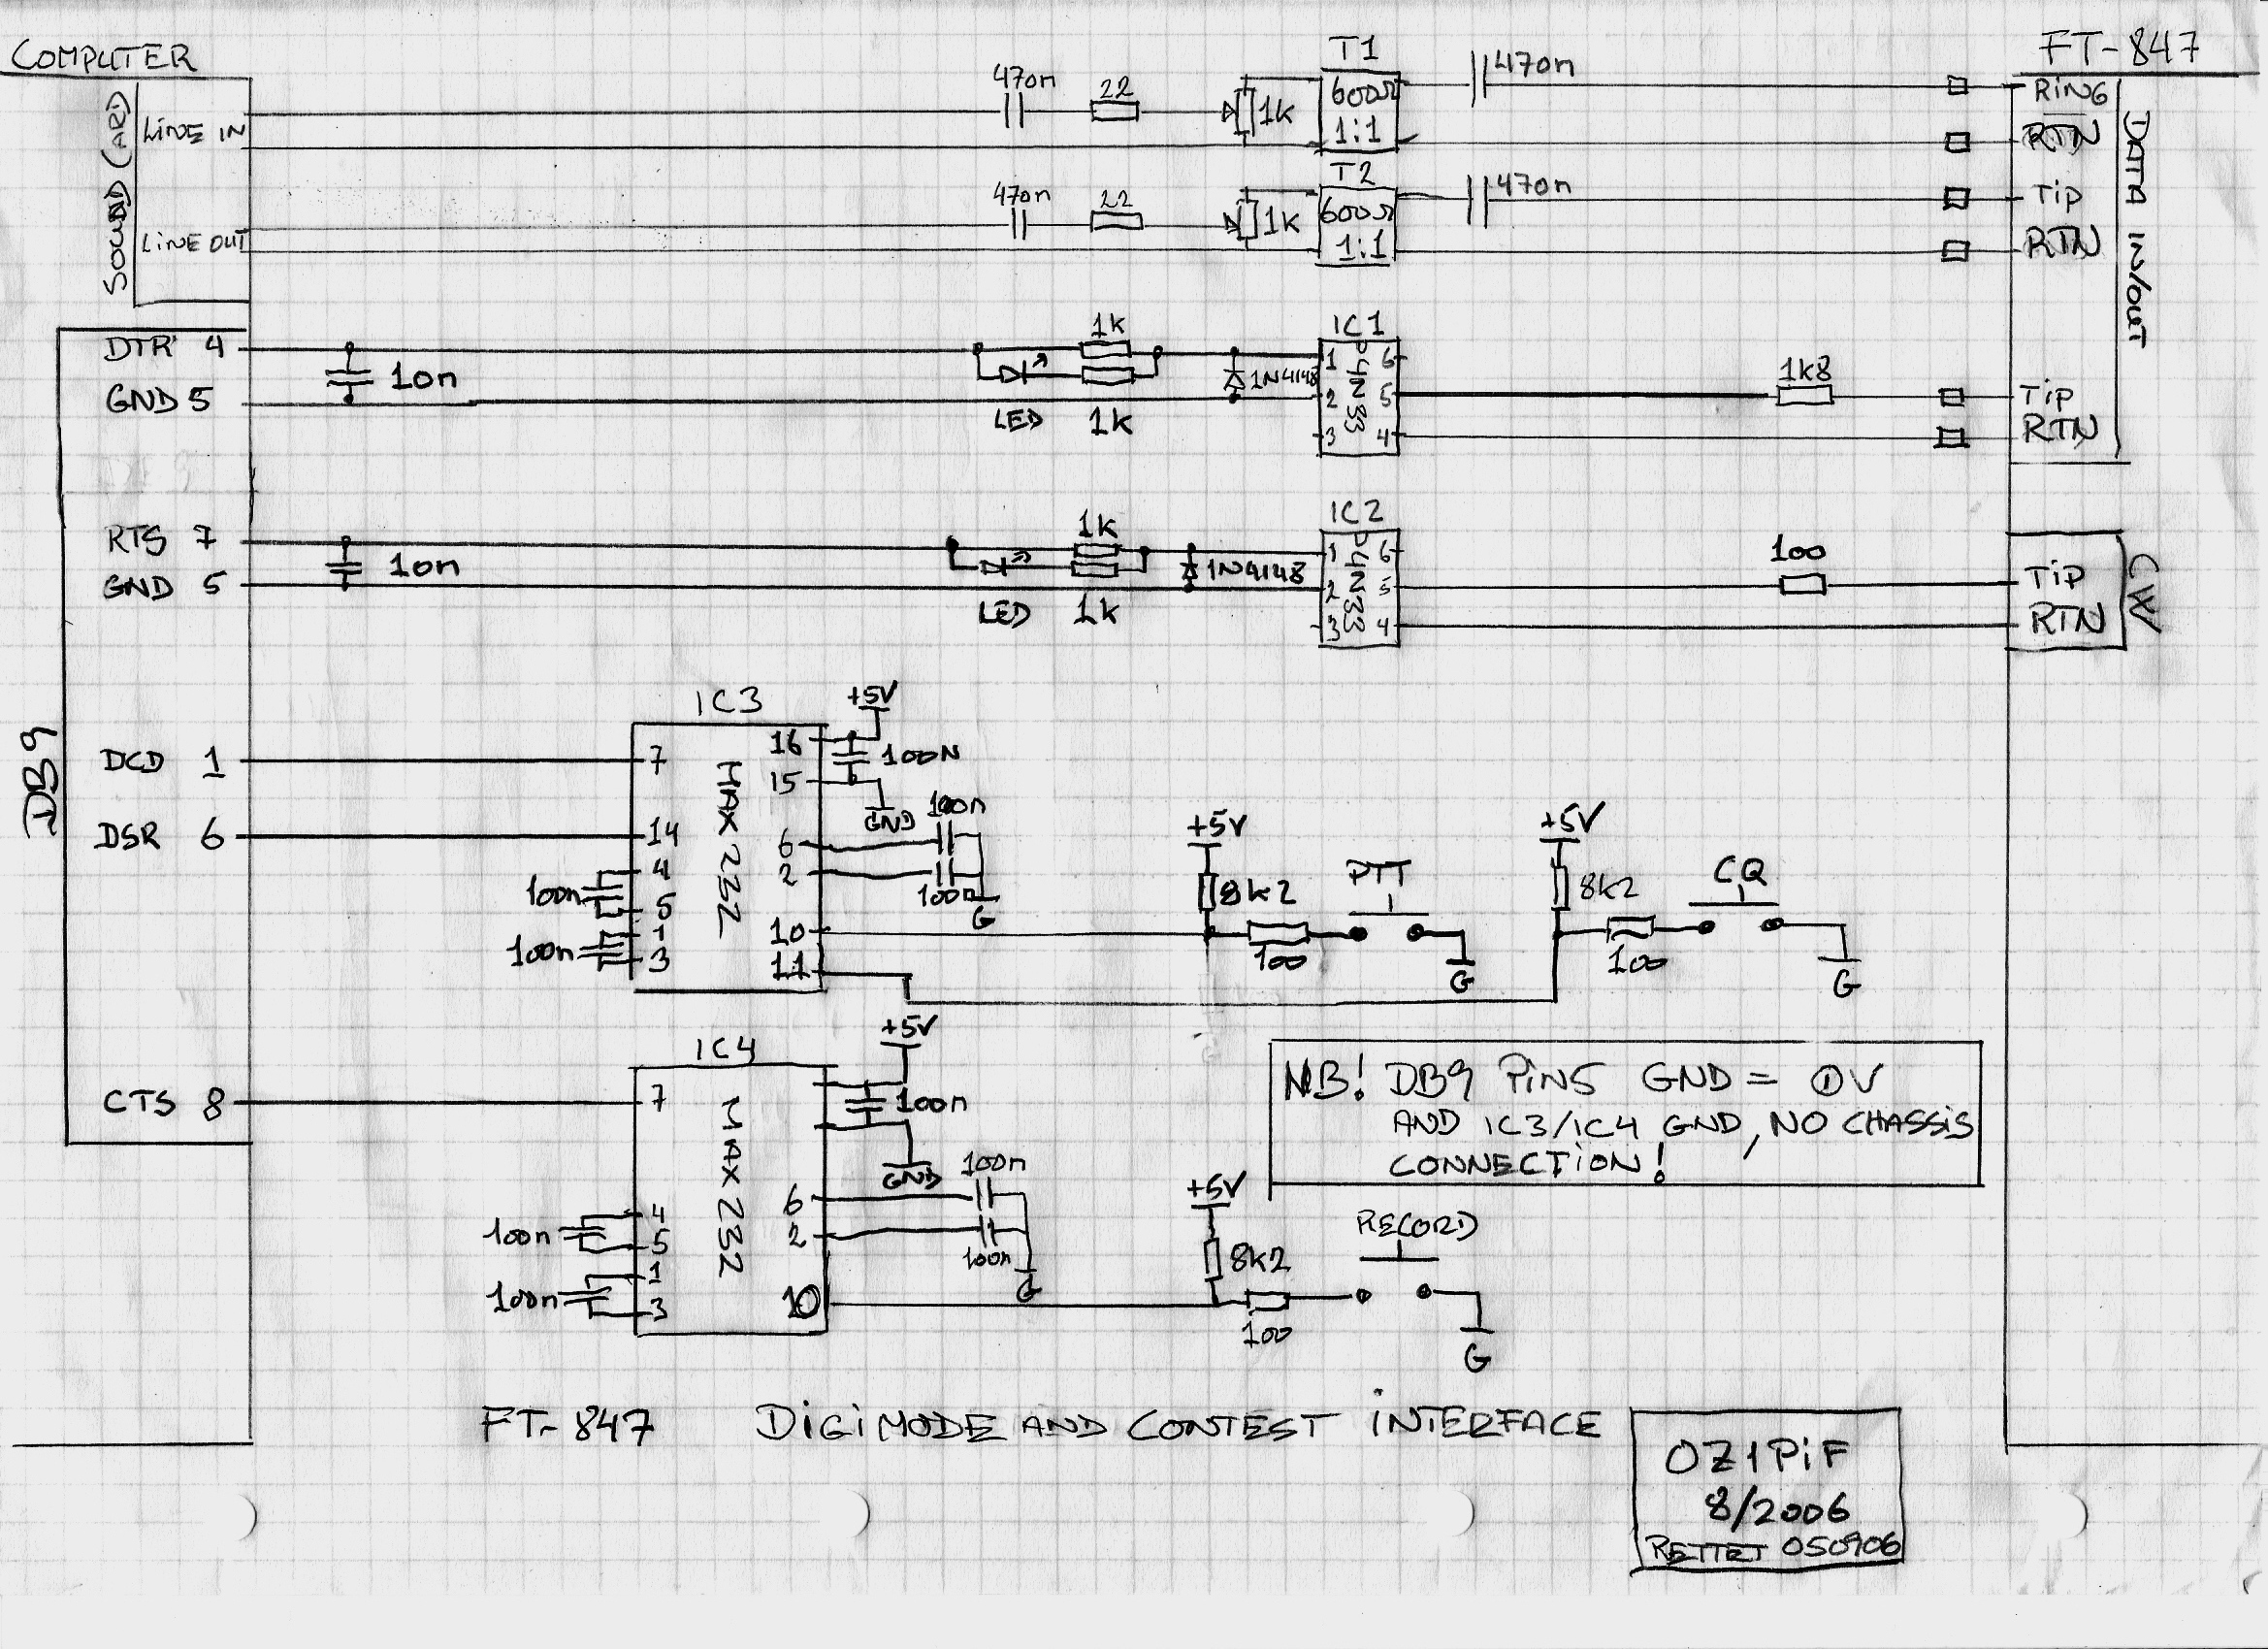 COMPUTER
FT-847
SOUND CARD
LINE IN
470n
22
1k
T1
600Ω
1:1
470n
RING
RTN
LINE OUT
470n
22
1k
T2
600Ω
1:1
470n
TIP
RTN
DATA IN/OUT
DB9
DTR 4
GND 5
10n
1k
LED
1k
1N4148
IC1
4N33
1
2
3
6
5
4
1k8
TIP
RTN
RTS 7
GND 5
10n
1k
LED
1k
1N4148
IC2
4N33
1
2
3
6
5
4
100
TIP
RTN
CW
DCD 1
DSR 6
IC3
MAX 232
7
14
4
5
1
3
16
15
6
2
10
11
100n
100n
+5V
100N
GND
100n
100n
G
+5V
8k2
100
PTT
G
+5V
8k2
100
CQ
G
CTS 8
IC4
MAX 232
7
4
5
1
3
6
2
10
100n
100n
+5V
100n
GND
100n
100n
G
+5V
8k2
100
RECORD
G
NB! DB9 PIN5 GND = 0V
AND IC3/IC4 GND, NO CHASSIS
CONNECTION!
FT-847 DIGIMODE AND CONTEST INTERFACE
OZ1PIF
8/2006
RETTET 050906